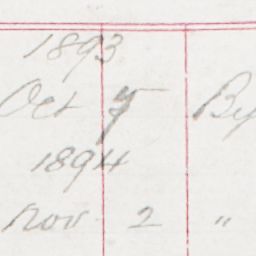 1893
Oct 7 By
1894
Nov 2 "